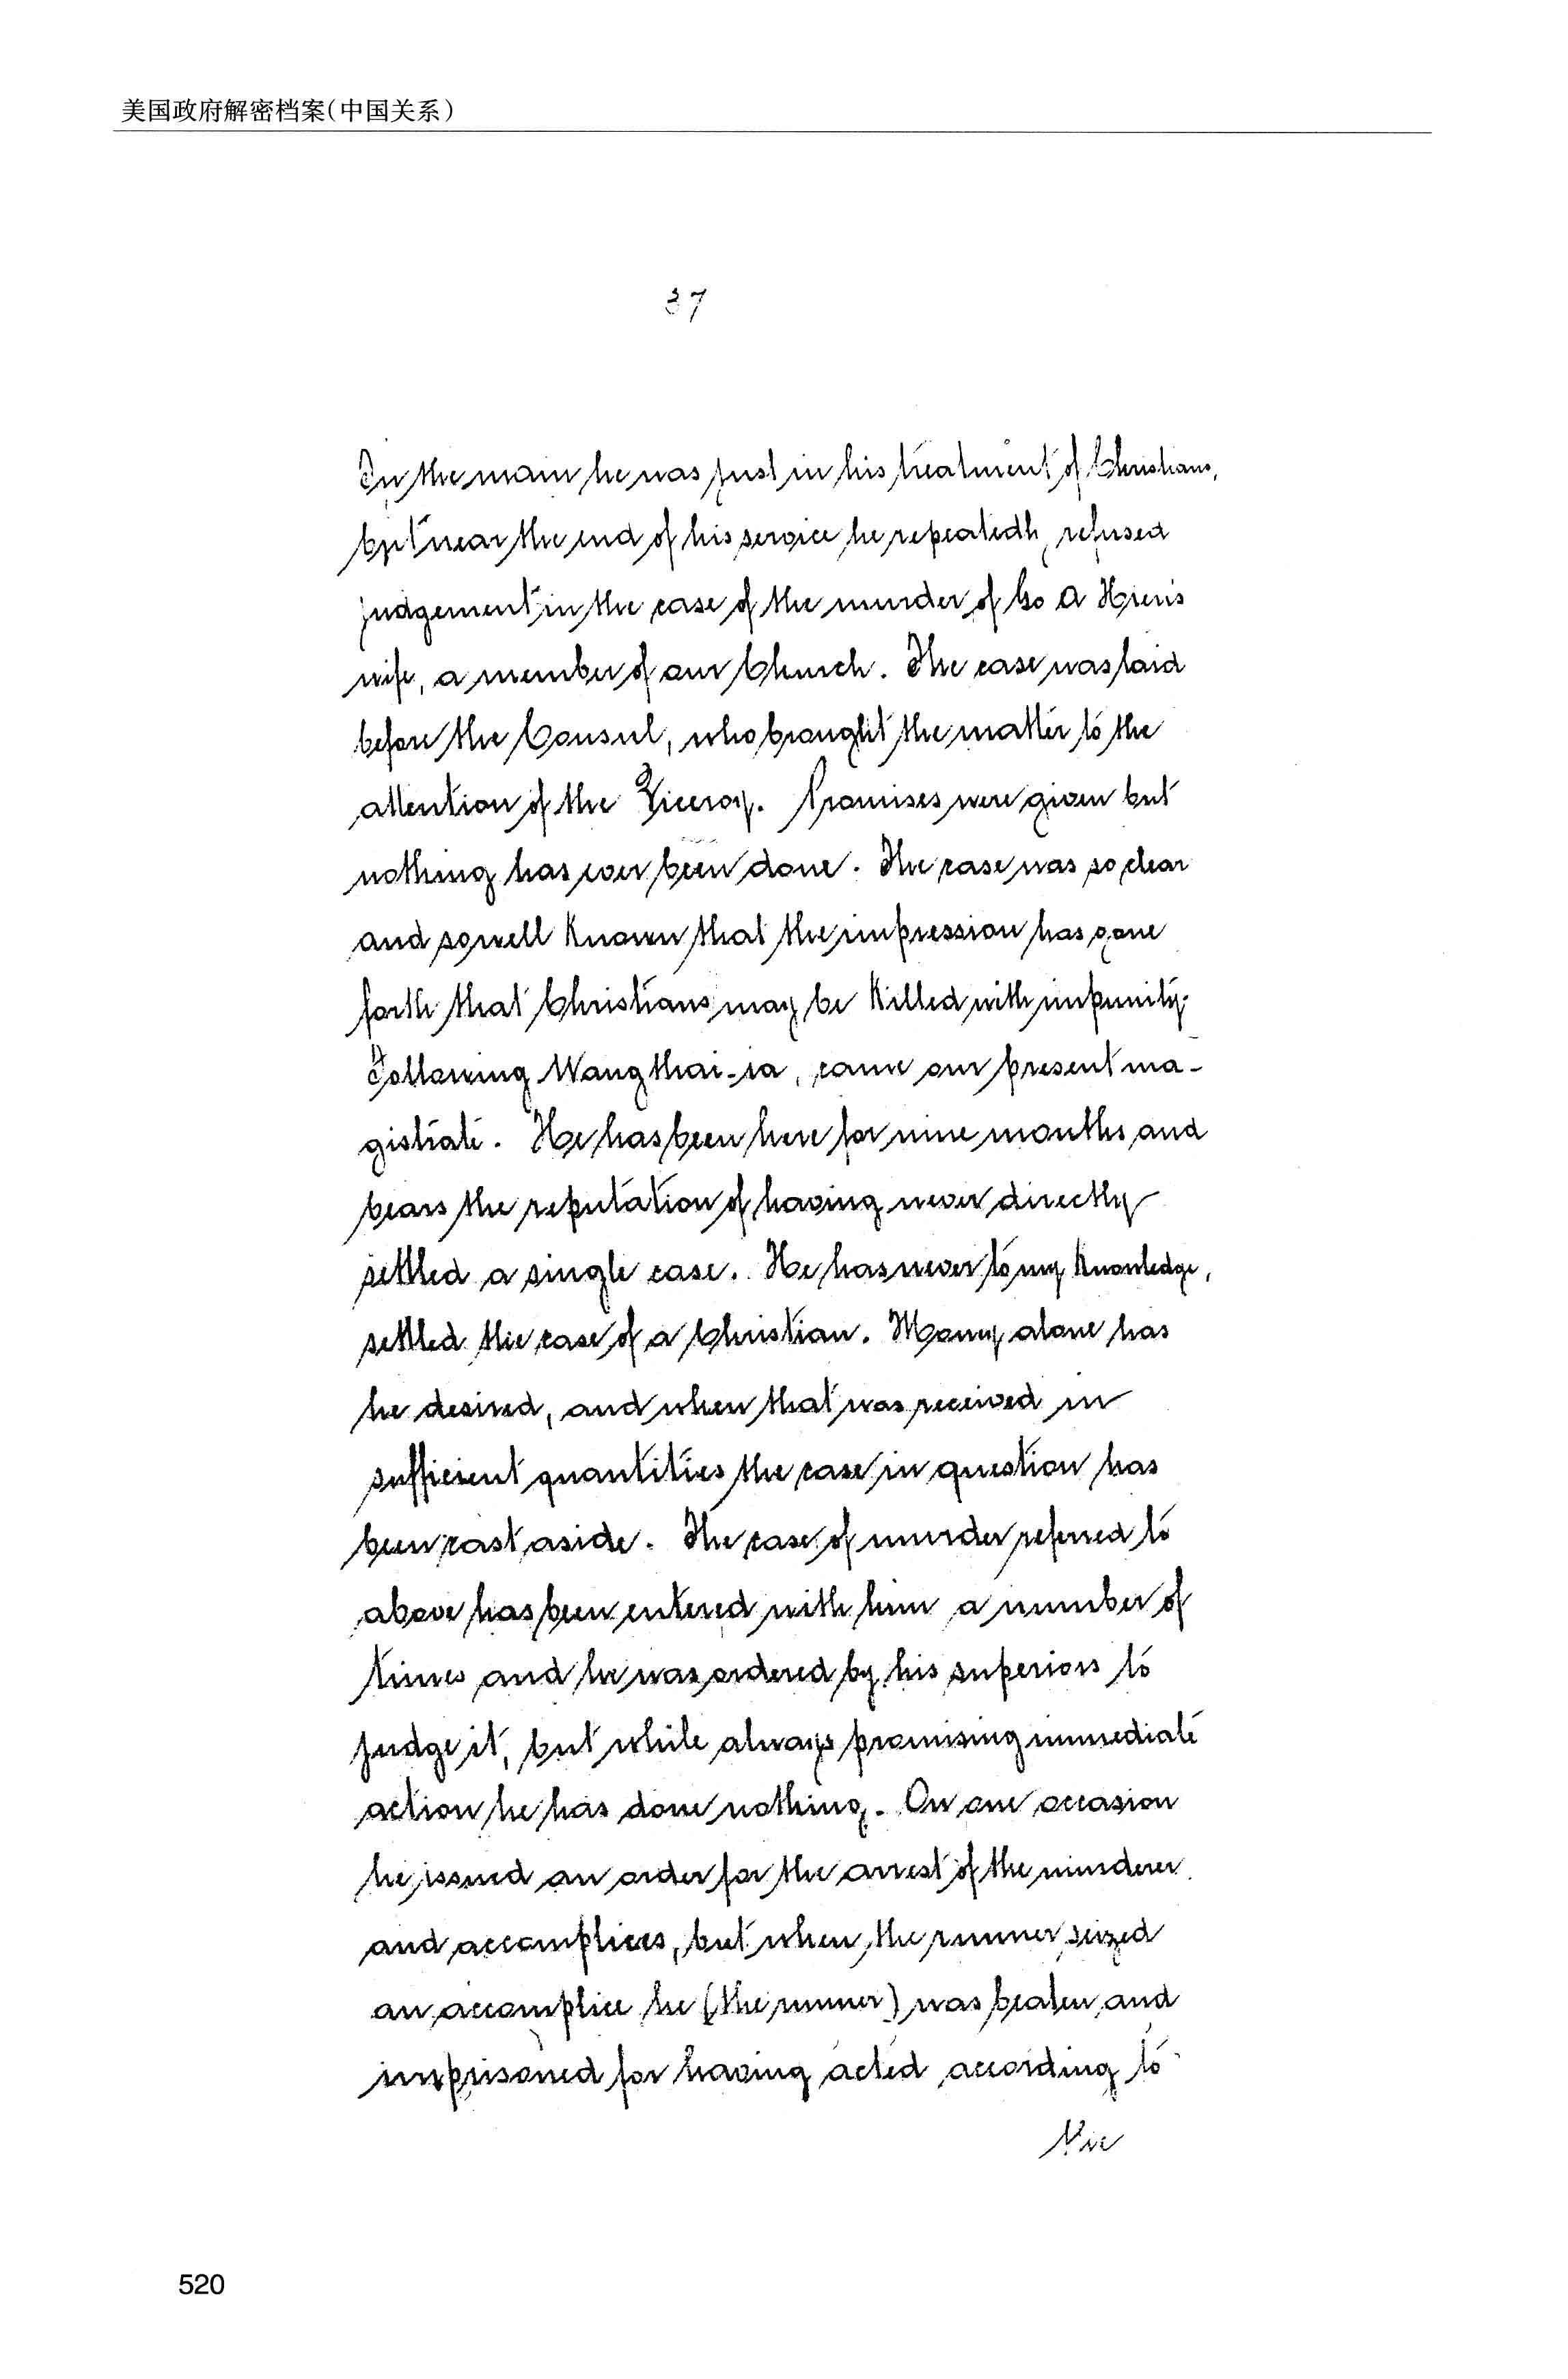 美国政府解密档案(中国关系)
37
In the main he was just in his treatment of Christians,
but near the end of his service he repeatedly refused
judgement in the case of the murder of Go A
wife, a member of our Church. The case was laid
before the Consul, who brought the matter to the
attention of the Viceroy. Promises were given but
nothing has ever been done. The case was so clear
and so well known that the impression has gone
forth that Christians may be killed with impunity.
Following Wang thai-ia, came our present ma-
gistrate. He has been here for nine months and
bears the reputation of having never directly
settled a single case. He has never to my knowledge,
settled the case of a Christian. Money alone has
he desired, and when that was received in
sufficient quantities the case in question has
been cast aside. The case of murder referred to
above has been entered with him a number of
times and he was ordered by his superiors to
judge it, but while always promising immediate
action he has done nothing. On one occasion
he issued an order for the arrest of the murderer
and accomplices, but when the runner seized
an accomplice he (the runner) was beaten and
imprisoned for having acted according to
520